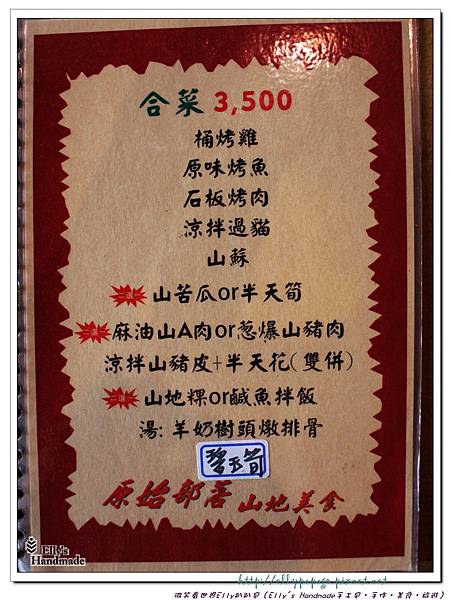 合菜 3,500
桶烤雞
原味烤魚
石板烤肉
涼拌過貓
山蘇
二選一 山苦瓜or半天筍
二選一 麻油山A肉or蔥爆山豬肉
涼拌山豬皮+半天花(雙併)
二選一 山地粿or鹹魚拌飯
湯: 羊奶樹頭燉排骨
碧玉筍
原始部落 山地美食
Elly's
Handmade
http://ellypopogo.pixnet.net
微笑看世界Elly趴趴皂(Elly's Handmade手工皂‧手作‧美食‧旅遊)